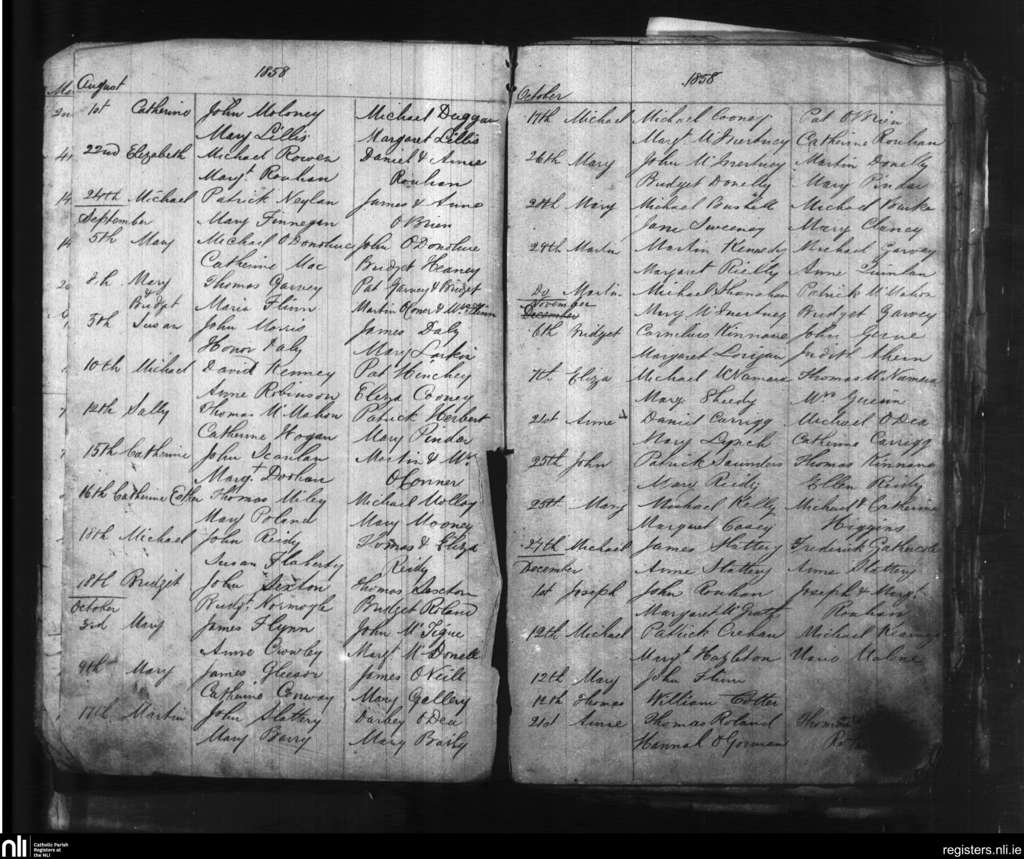 1858
August
1st Catherine John Moloney Michael Duggan
Mary Lillis Margaret Lillis
22nd Elizabeth Michael Rowen Daniel & Anne
Margt Rouhan Rouhan
24th Michael Patrick Neylan James & Anne
September Mary Finnegan O'Brien
5th Mary Michael O'Donohue John O'Donohue
Catherine Mac Bridget Heaney
8th Mary Thomas Garvey Pat Garvey & Bridget
& Bridgt Maria Flinn Martin Honer & Mrs Flinn
5th Susan John Morris James Daly
Honor Daly Mary Larkin
10th Michael David Kenney Pat Hinchey
Anne Robinson Eliza Cooney
12th Sally Thomas McMahon Patrick Herbert
Catherine Hogan Mary Pindar
15th Catherine John Scanlan Martin & Mrs
Margt Doohan O'Conner
16th Catherine Esther Thomas Miley Michael Molloy
Mary Poland Mary Mooney
18th Michael John Reidy Thomas & Eliza
Susan Flaherty Reidy
18th Bridget John Sexton Thomas Sexton
October Bridgt Bridget Roland
3rd Mary James Flynn John McTigue
Anne Crowley Margt McDonell
9th Mary James Gleeson James O'Neill
Catherine Conway Mary Gallery
17th Martin John Slattery Darbey O'Dea
Mary Barry Mary Baily
1858
October
17th Michael Michael Cooney Pat O'Brien
Margt McInerney Catherine Rouhan
26th Mary John McInerney Martin Donelly
Bridget Donelly Mary Pindar
28th Mary Michael Michael Burke
Jane Sweeney Mary Clancy
28th Martin Martin Kennedy Michael Garvey
Margaret Rielly Anne Quinlan
Do Martin Michael Shanahan Patrick McMahon
November Mary McInerney Bridget Garvey
December
6th Bridget Cornelius Kinnane John
Margaret Lorigan Judith Ahern
7th Eliza Michael McNamara Thomas McNamara
Mary Sheedy Mrs
21st Anne Daniel Carrigg Michael O'Dea
Mary Lynch Catherine Carrigg
25th John Patrick Saunders Thomas Kinnane
Mary Reidy Ellen Reidy
25th Mary Michael Kelly Michael & Catherine
Margaret Casey Higgins
27th Michael James Slattery Frederick Gathercole
December Anne Slattery Anne Slattery
1st Joseph John Rouhan Joseph & Margt
Margaret McGrath Rouhan
12th Michael Patrick Crehan Michael Kearney
Margt Hazleton Malone
12th Mary John Flinn
12th Thomas William Cotter
21st Anne Thomas Roland Thomas
Hannah O'Gorman
nli
Catholic Parish
Registers at
the NLI
registers.nli.ie